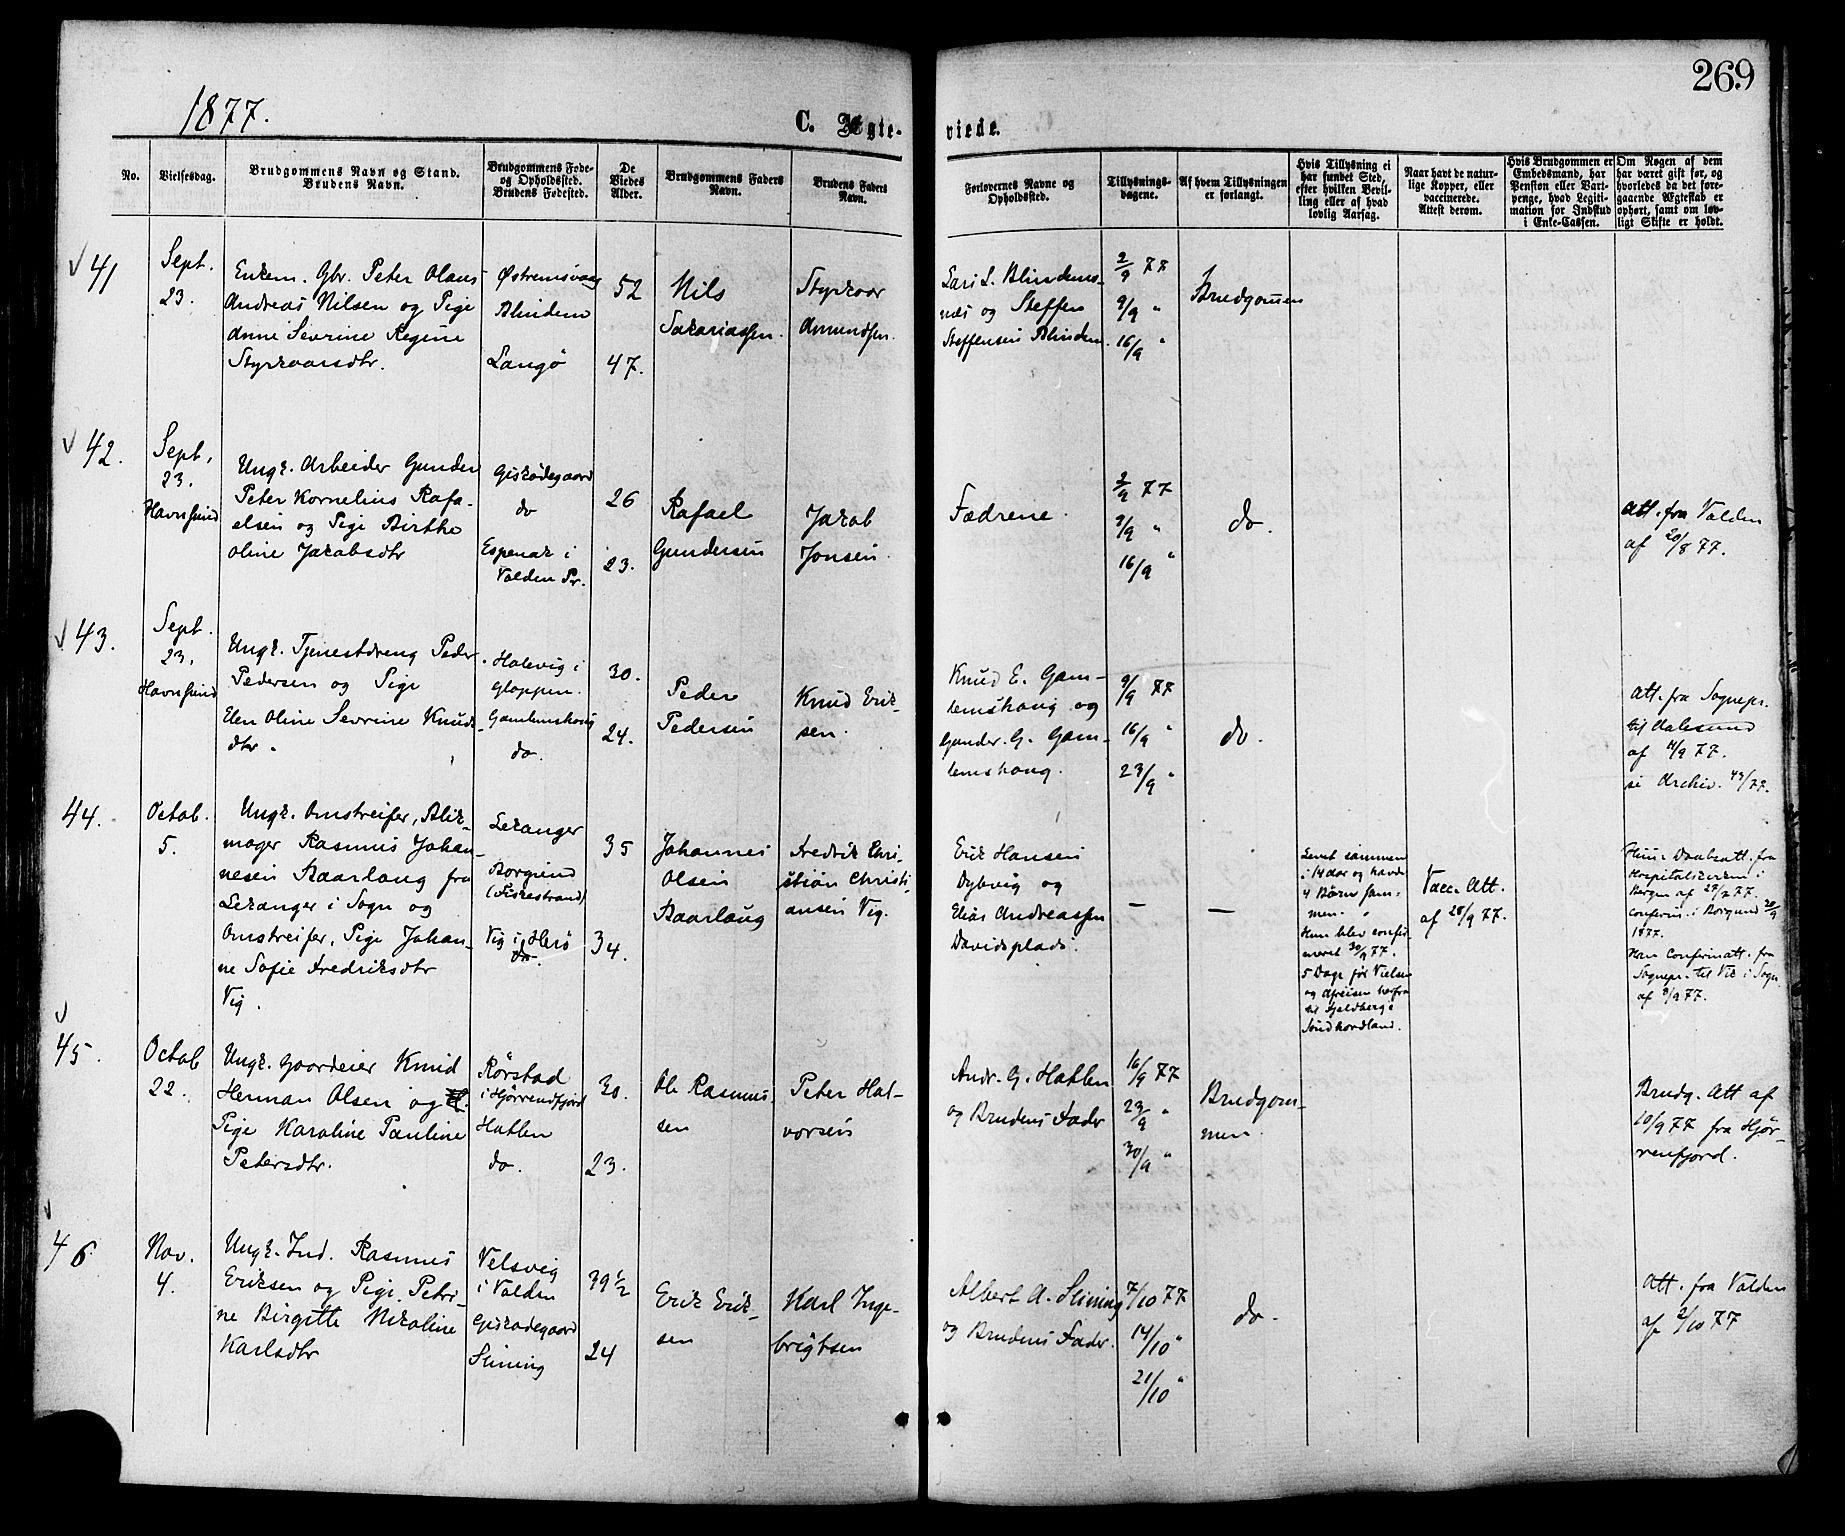 269
1877.
C. Ægte-
viede.
No.
Vielsesdag.
Brudgommens Navn og Stand.
Brudens Navn.
Brudgommens Føde-
og Opholdssted.
Brudens Fødested.
De
Viedes
Alder.
Brudgommens Faders
Navn.
Brudens Faders
Navn.
Forlovernes Navne og
Opholdssted.
Tillysnings-
dagene.
Af hvem Tillysningen
er forlangt.
Hvis Tillysning ei
har fundet Sted,
efter hvilken Bevil-
ling eller af hvad
lovlig Aarsag.
Naar havt de natur-
lige Kopper, eller
vaccinerede.
Attest derom.
Hvis Brudgommen er
Embedsmand, har
Pension eller Vart-
penge, hvad Legiti-
mation for Indskud
i Enke-Cassen.
Om Nogen af dem
har været gift før, og
hvorledes da det fore-
gaaende Ægteskab er
ophørt, samt om lov-
ligt Skifte er holdt.
41
Sept.
23.
Enkem. Gbr. Peter Olaus
Andreas Nilsen og Pige
Anne Sevrine Regine
Styrkaarsdtr.
Østremsvaag
Blindem
Langø
52
47.
Nils
Sakariassen.
Styrkaar
Amundsen.
Lars L. Blindems-
nes og Steffen
Steffensen Blindem.
2/9 77
9/9 "
16/9 "
Brudgomen
42.
Sept.
23.
Havnsund
Ungk. Arbeider Gunder
Peter Kornelius Rafa-
elsen og Pige Birthe
Oline Jakobsdtr
Giskødegaard
do
Espenak i
Volden Pr.
26
23.
Rafael
Gundersen
Jakob
Jonsen.
Fædrene.
2/9 77
9/9 "
16/9 "
do.
Att. fra Volden
af 20/8 77.
43.
Sept.
23.
Havnsund
Ungk. Tjenestdreng Peder
Pedersen og Pige
Elen Oline Sevrine Knuds-
dtr.
Holevig i
Gloppen.
Gamlemshoug
do.
30.
24.
Peder
Pedersen
Knud Erik-
sen.
Knud E. Gam-
lemshoug og
Gunder G. Gam-
lemshoug.
9/9 77
16/9 "
23/9 "
do.
Att. fra Sognepr.
til Aalesund
af 14/9 77.
si Archiv. 43/77.
44.
Octob.
5.
Ungk. Omstreifer, Blik-
mager Rasmus Johan-
nesen Staarlaug fra
Lekanger i Sogn og
Omstreifer, Pige Johan-
ne Sofie Fredriksdtr
Vig.
Lekanger
Borgund
(Fiskestrand)
Vig i Herø
do.
35
34.
Johannes
Olsen
Staarlaug
Fredrik Chri-
stian Christi-
ansen Vig.
Erik Hansen
Dybvig og
Elias Andreassen
Davidsplads.
—
—
Levet sammen
i 14 aar og havde
4 Børn sam-
men.
Hun blev confir-
meret 30/9 77.
5 Dage før Vielsen
og afreisen herfra
til Fjeldberg i
Søndhordland.
Vacc. Att.
af 28/9 77.
Hun: Daabsatt. fra
Hospitalskirken i
Bergen af 27/2 77.
Confirm. i Borgund 30/9
1877.
Han Confirmatt. fra
Sognepr. til Vik i Sogn
af 9/9 77.
45.
Octob
22.
Ungk. Gaardeier Knud
Herman Olsen og
Pige Karoline Pauline
Petersdtr.
Rørstad
i Hjørrendfjord
Hatlen
do.
30.
23.
Ole Rasmus-
sen
Peter Hal-
vorsen
Andr. G. Hatlen
og Brudens Fader
16/9 77
23/9 "
30/9 "
Brudgom-
men.
Brudg. Att af
10/9 77 fra Hjør-
renfjord.
46
Nov.
4.
Ungk. Ind. Rasmus
Eriksen og Pige Petri-
ne Birgitte Nikoline
Karlsdtr
Velsvig
i Volden
Giskødegaard
Slining
39 1/2
24
Erik Erik-
sen
Karl Inge-
brigtsen
Albert A. Slining
og Brudens Fader.
7/10 77
14/10 "
21/10 "
do.
Att. fra Volden
af 2/10 77